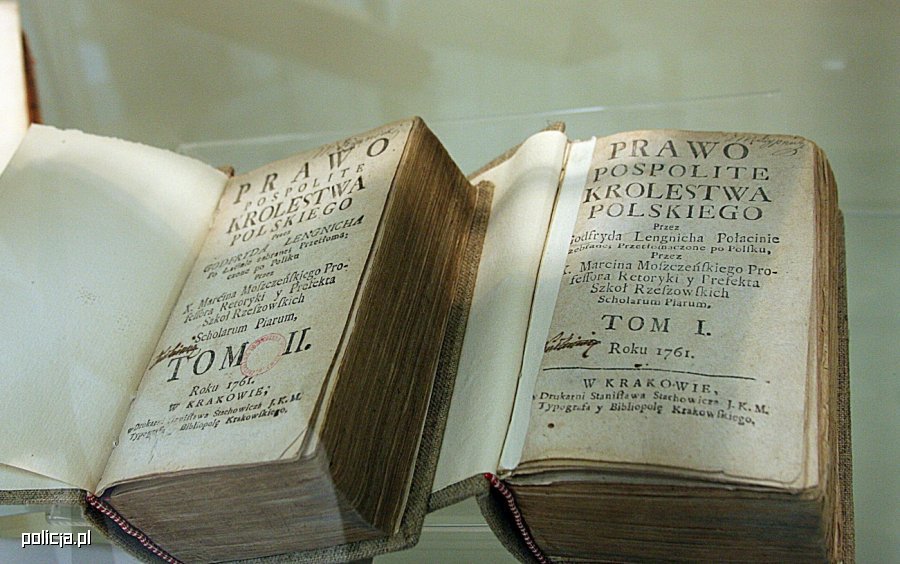 PRAWO
POSPOLITE
KROLESTWA
POLSKIEGO
Przez
GODFRYDA LENGNICHA
Po Łacinie zebrane, Przetłoma-
czone po Polſku
Przez
X. Marcina Moſzczeńſkiego Pro-
feſſora Retoryki y Prefekta
Szkoł Rzeſzowſkich
Scholarum Piarum,
TOM II.
Roku 1761.
W KRAKOWIE,
w Drukarni Stanisława Stachowicza J. K. M.
Typografa y Bibliopolę Krakowſkiego,
PRAWO
POSPOLITE
KROLESTWA
POLSKIEGO
Przez
Godfryda Lengnicha Połacinie
zebrane, Przetłomaczone po Polſku,
Przez
X. Marcina Moſzczeńſkiego Pro-
feſſora Retoryki y Prefekta
Szkoł Rzeſzowſkich
Scholarum Piarum,
TOM I.
Roku 1761.
W KRAKOWIE,
w Drukarni Stanisława Stachowicza J. K. M.
Typografa y Bibliopolę Krakowſkiego,
policja.pl